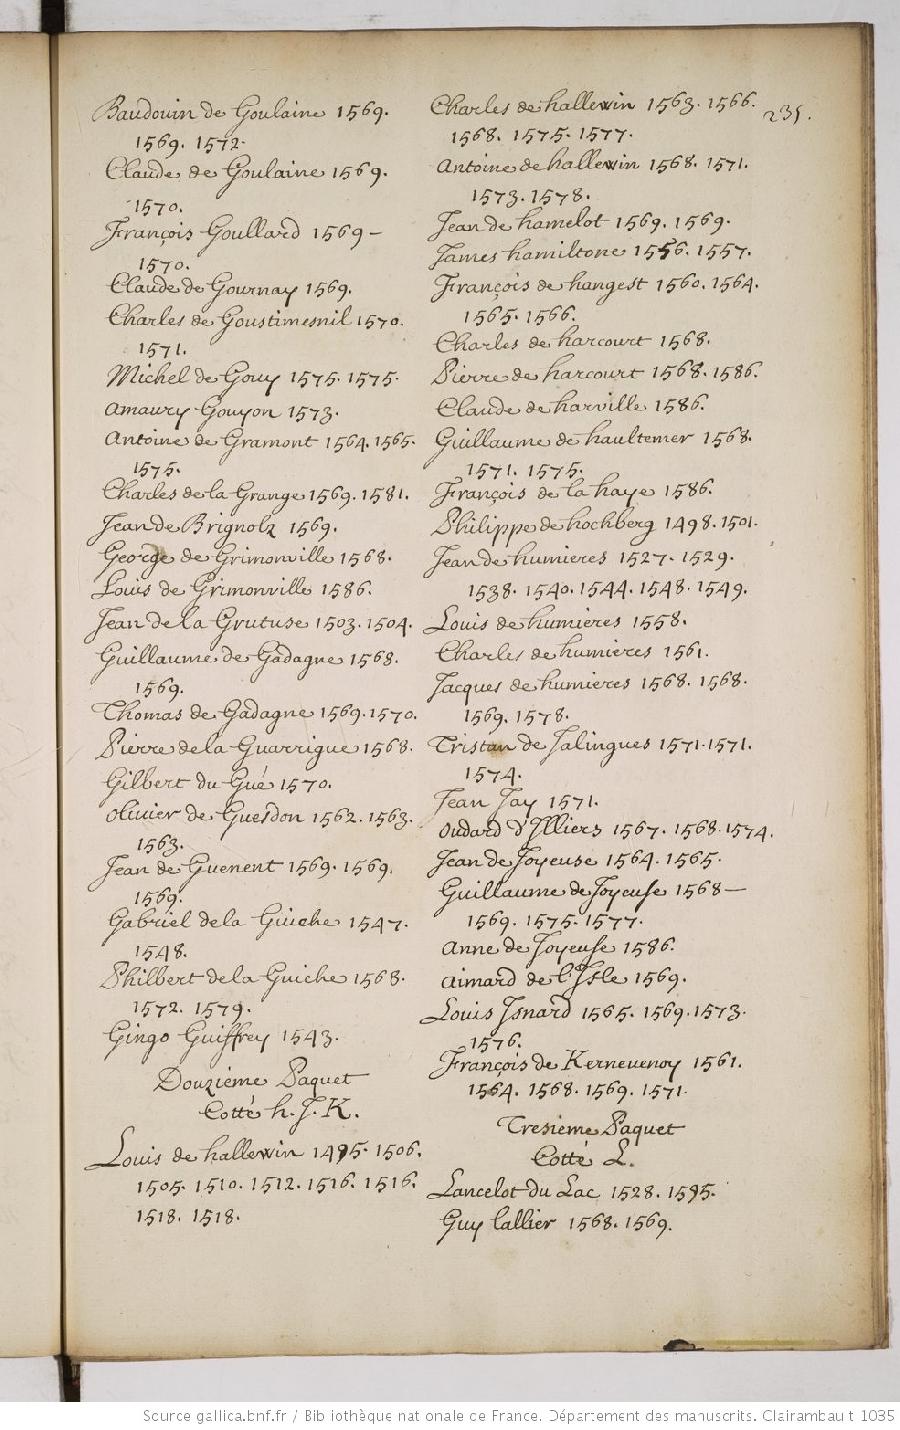 235.
Baudouin de Goulaine 1569.
1569. 1572.
Claude de Goulaine 1569.
1570.
François Goullard 1569 –
1570.
Claude de Gournay 1569.
Charles de Goustimesnil 1570.
1571.
Michel de Gouy 1575. 1575.
Amaury Gouyon 1573.
Antoine de Gramont 1564. 1565.
1575.
Charles de la Grange 1569. 1581.
Jean de Brignolz 1569.
George de Grimonville 1568.
Louis de Grimonville 1586.
Jean de la Grutuse 1503. 1504.
Guillaume de Gadagne 1568.
1569.
Thomas de Gadagne 1569. 1570.
Pierre de la Guarrigue 1568.
Gilbert du Gué 1570.
Olivier de Guesdon 1562. 1563.
1563.
Jean de Guenent 1569. 1569.
1569.
Gabriel de la Guiche 1547.
1548.
Philbert de la Guiche 1568.
1572. 1579.
Gingo Guiffrey 1543.
Douzieme Paquet
Cotté h. J. K.
Louis de hallewin 1495. 1506.
1505. 1510. 1512. 1516. 1516.
1518. 1518.
Charles de hallewin 1563. 1566.
1568. 1575. 1577.
Antoine de hallewin 1568. 1571.
1573. 1578.
Jean de hamelot 1569. 1569.
James hamiltone 1556. 1557.
François de hangest 1560. 1564.
1565. 1566.
Charles de harcourt 1568.
Pierre de harcourt 1568. 1586.
Claude de harville 1586.
Guillaume de haultemer 1568.
1571. 1575.
François de la haye 1586.
Philippe de hochberg 1498. 1501.
Jean de humieres 1527. 1529.
1538. 1540. 1544. 1548. 1549.
Louis de humieres 1558.
Charles de humieres 1561.
Jacques de humieres 1568. 1568.
1569. 1578.
Tristan de Jalingues 1571. 1571.
1574.
Jean Jay 1571.
Oudard d'Illiers 1567. 1568. 1574.
Jean de Joyeuse 1564. 1565.
Guillaume de Joyeuse 1568 –
1569. 1575. 1577.
Anne de Joyeuse 1586.
Aimard de l'Isle 1569.
Louis Isnard 1565. 1569. 1573.
1576.
François de Kernevenoy 1561.
1564. 1568. 1569. 1571.
Tresieme Paquet
Cotté L.
Lancelot du Lac 1528. 1595.
Guy Lallier 1568. 1569.
Source gallica.bnf.fr / Bibliothèque nationale de France. Département des manuscrits. Clairambault 1035